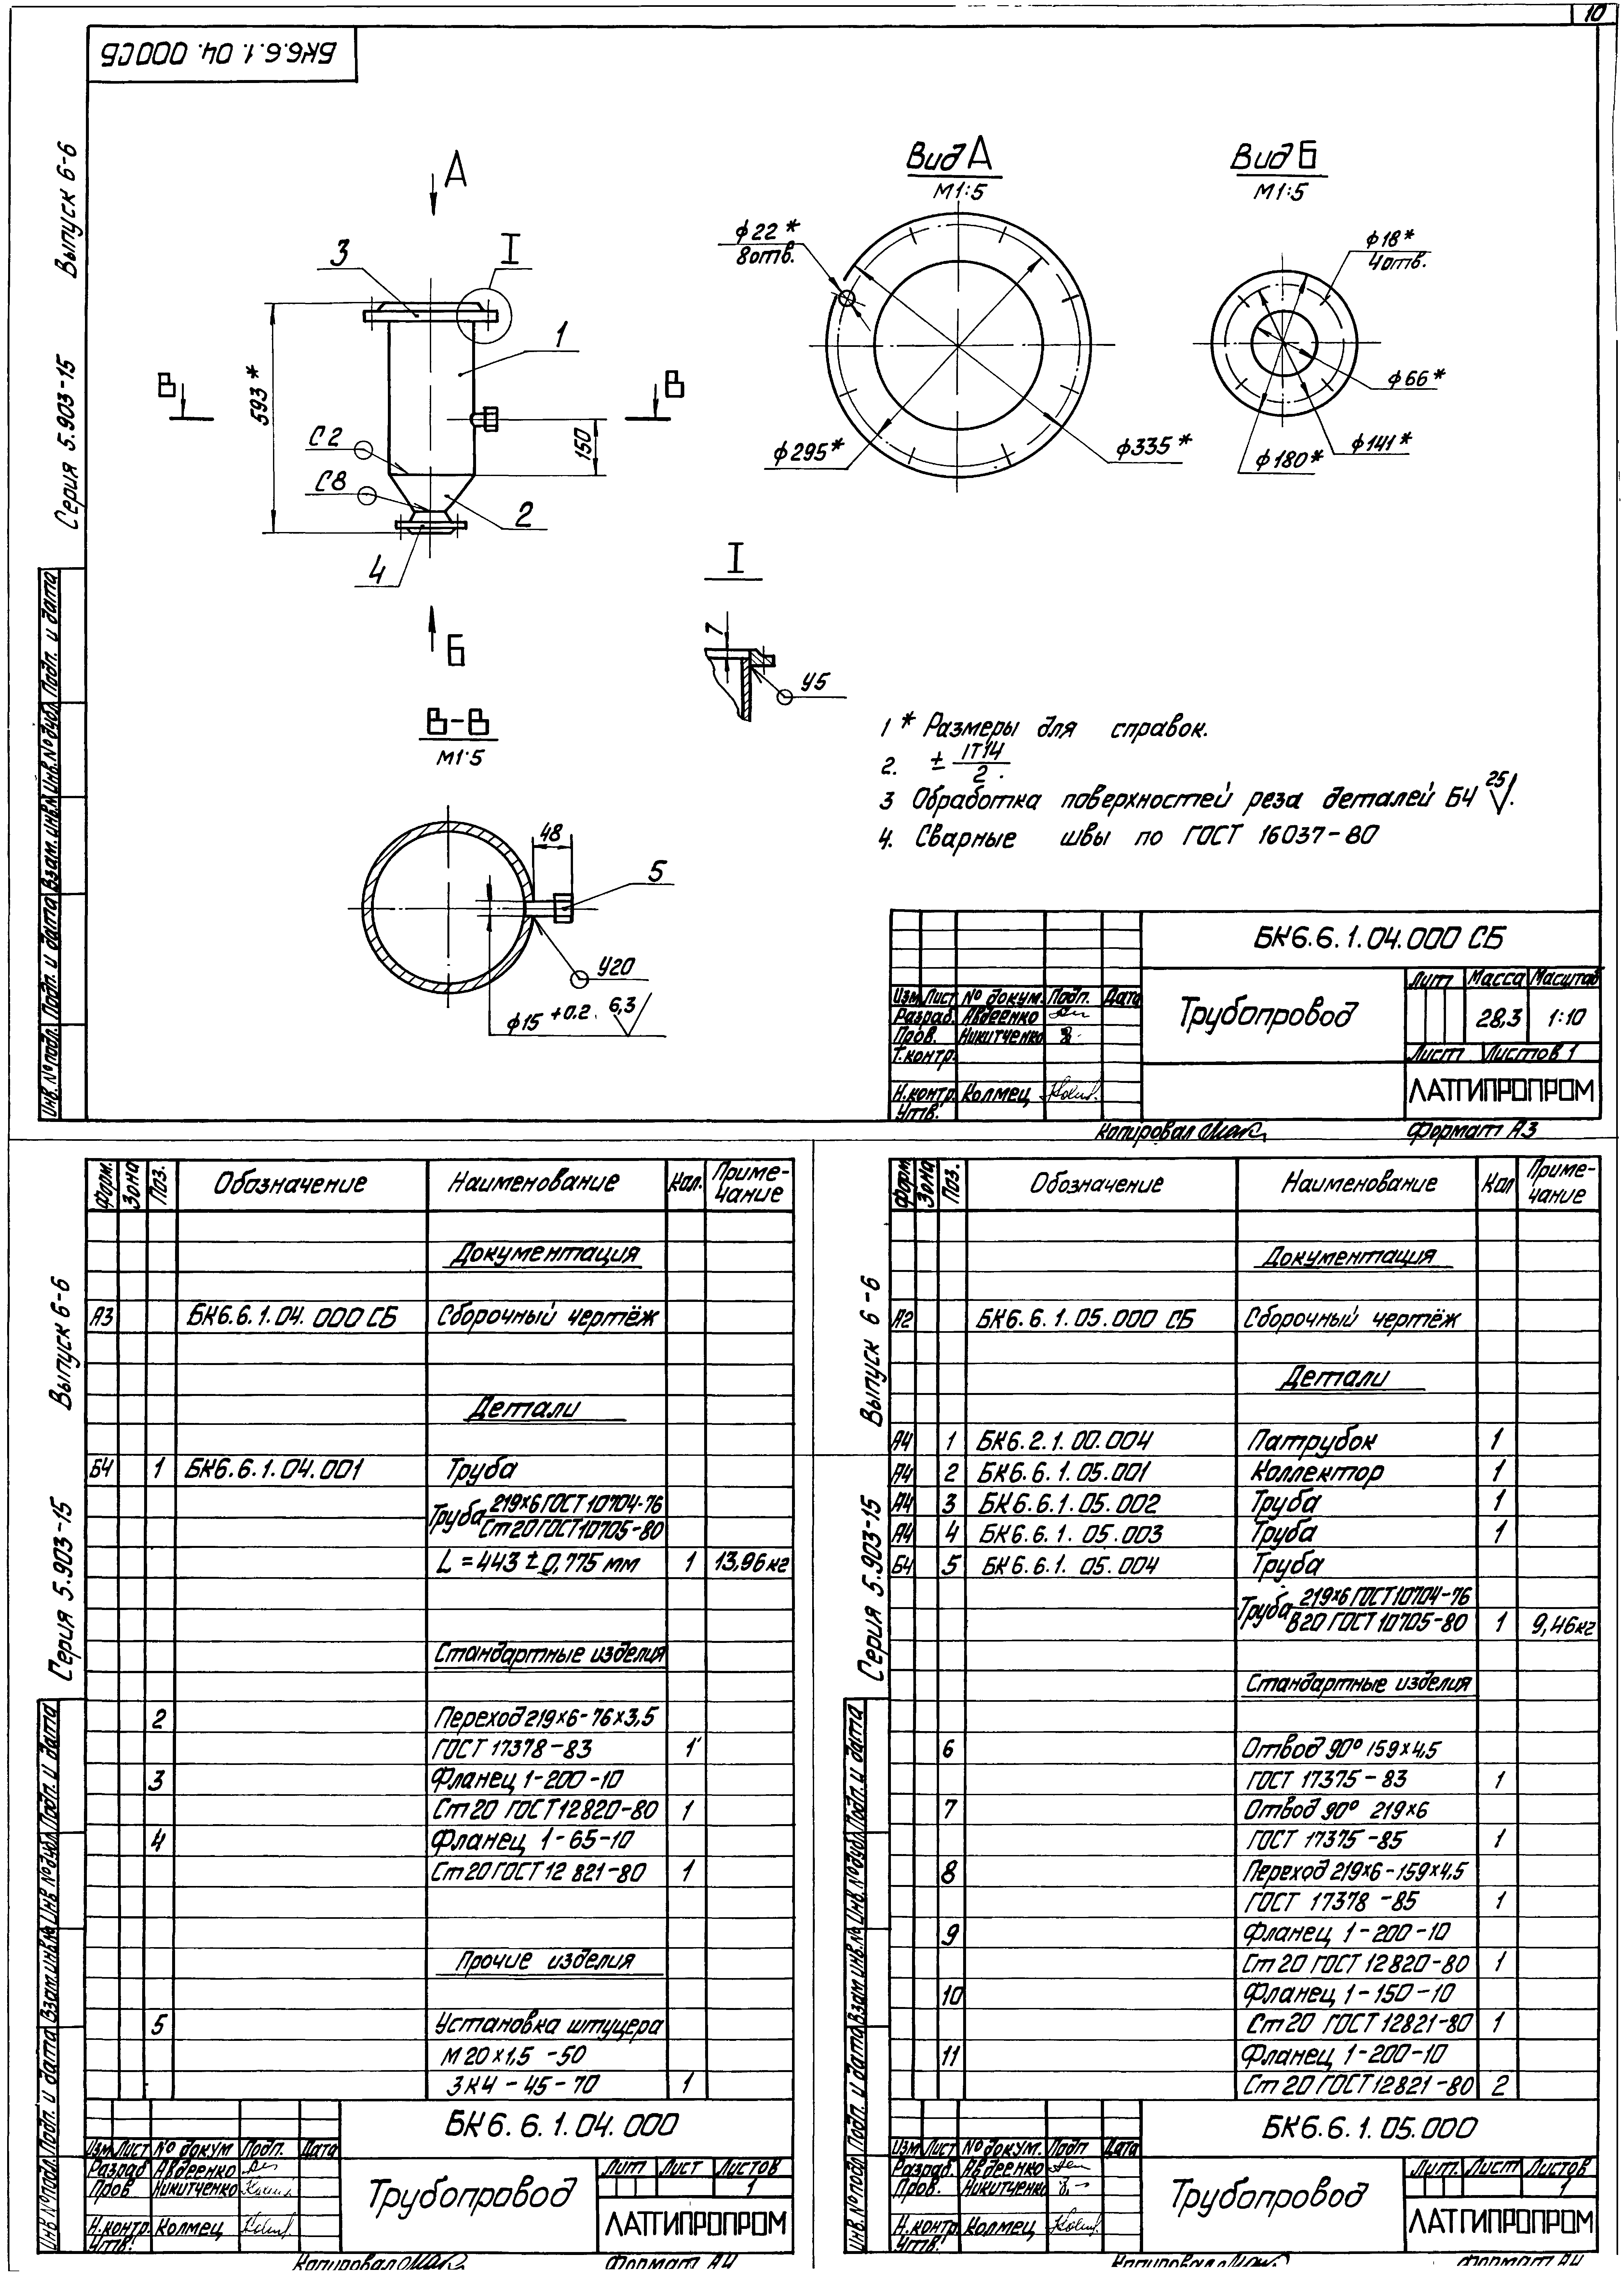 10
БК6.6.1.04.000СБ
Серия 5.903-15 Выпуск 6-6
А
I
3
1
593*
В В
С2
С8
150
2
4
Б
Вид А
М1:5
ϕ22*
8отв.
ϕ295*
ϕ335*
Вид Б
М1:5
ϕ18*
4отв.
ϕ66*
ϕ141*
ϕ180*
I
7
У5
В-В
М1:5
48
5
У20
ϕ15 +0.2 6,3
1 * Размеры для справок.
2. ± IT14/2.
3 Обработка поверхностей реза деталей БЧ 25.
4. Сварные швы по ГОСТ 16037-80
Инв. № подл. Подп. и дата Взам. инв. № Инв. № дубл. Подп. и дата
БК6.6.1.04.000 СБ
Изм Лист № докум. Подп. Дата
Разраб. Авдеенко
Пров. Никитченко
Т.контр.
Н.контр. Колмец
Утв.
Трубопровод
Лит Масса Масштаб
28,3 1:10
Лист Листов 1
ЛАТГИПРОПРОМ
Копировал Формат А3
Серия 5.903-15 Выпуск 6-6
Форм. Зона Поз. Обозначение Наименование Кол. Примечание
Документация
А3 БК6.6.1.04.000 СБ Сборочный чертёж
Детали
БЧ 1 БК6.6.1.04.001 Труба
Труба 219×6 ГОСТ 10704-76
Ст20 ГОСТ 10705-80
L = 443 ± 0,775 мм 1 13,96кг
Стандартные изделия
2 Переход 219×6-76×3,5
ГОСТ 17378-83 1
3 Фланец 1-200-10
Ст20 ГОСТ 12820-80 1
4 Фланец 1-65-10
Ст20 ГОСТ 12821-80 1
Прочие изделия
5 Установка штуцера
М20×1,5 -50
ЗК4-45-70 1
Инв. № подл. Подп. и дата Взам. инв. № Инв. № дубл. Подп. и дата
БК6.6.1.04.000
Изм Лист № докум Подп. Дата
Разраб Авдеенко
Пров Никитченко
Н.контр. Колмец
Утв.
Трубопровод
Лит Лист Листов
1
ЛАТГИПРОПРОМ
Копировал Формат А4
Серия 5.903-15 Выпуск 6-6
Форм Зона Поз. Обозначение Наименование Кол Примечание
Документация
А2 БК6.6.1.05.000 СБ Сборочный чертёж
Детали
А4 1 БК6.2.1.00.004 Патрубок 1
А4 2 БК6.6.1.05.001 Коллектор 1
А4 3 БК6.6.1.05.002 Труба 1
А4 4 БК6.6.1.05.003 Труба 1
БЧ 5 БК6.6.1.05.004 Труба
Труба 219×6 ГОСТ 10704-76
В20 ГОСТ 10705-80 1 9,46кг
Стандартные изделия
6 Отвод 90° 159×4,5
ГОСТ 17375-83 1
7 Отвод 90° 219×6
ГОСТ 17375-85 1
8 Переход 219×6-159×4,5
ГОСТ 17378-85 1
9 Фланец 1-200-10
Ст20 ГОСТ 12820-80 1
10 Фланец 1-150-10
Ст20 ГОСТ 12821-80 1
11 Фланец 1-200-10
Ст20 ГОСТ 12821-80 2
Инв. № подл Подп. и дата Взам инв. № Инв. № дубл. Подп. и дата
БК6.6.1.05.000
Изм Лист № докум. Подп Дата
Разраб. Авдеенко
Пров. Никитченко
Н.контр. Колмец
Утв.
Трубопровод
Лит Лист Листов
1
ЛАТГИПРОПРОМ
Копировал Формат А4